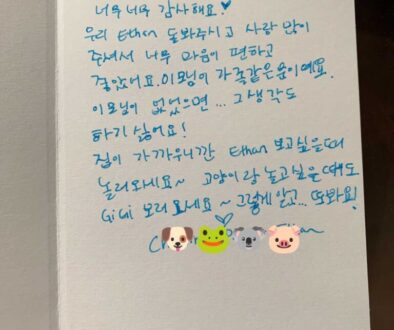 너무너무 감사해요!
우리 Ethan 돌봐주시고 사랑 많이
주셔서 너무 마음이 편하고
좋았어요. 이모님이 가족같은분이예요.
이모님이 없었으면... 그 생각도
하기 싫어요!
집이 가까우니깐 Ethan 보고싶을때
놀러오세요~ 고양이랑 놀고싶을때도
GiGi 보러 오세요~ 그렇게 알고... 또봐요!